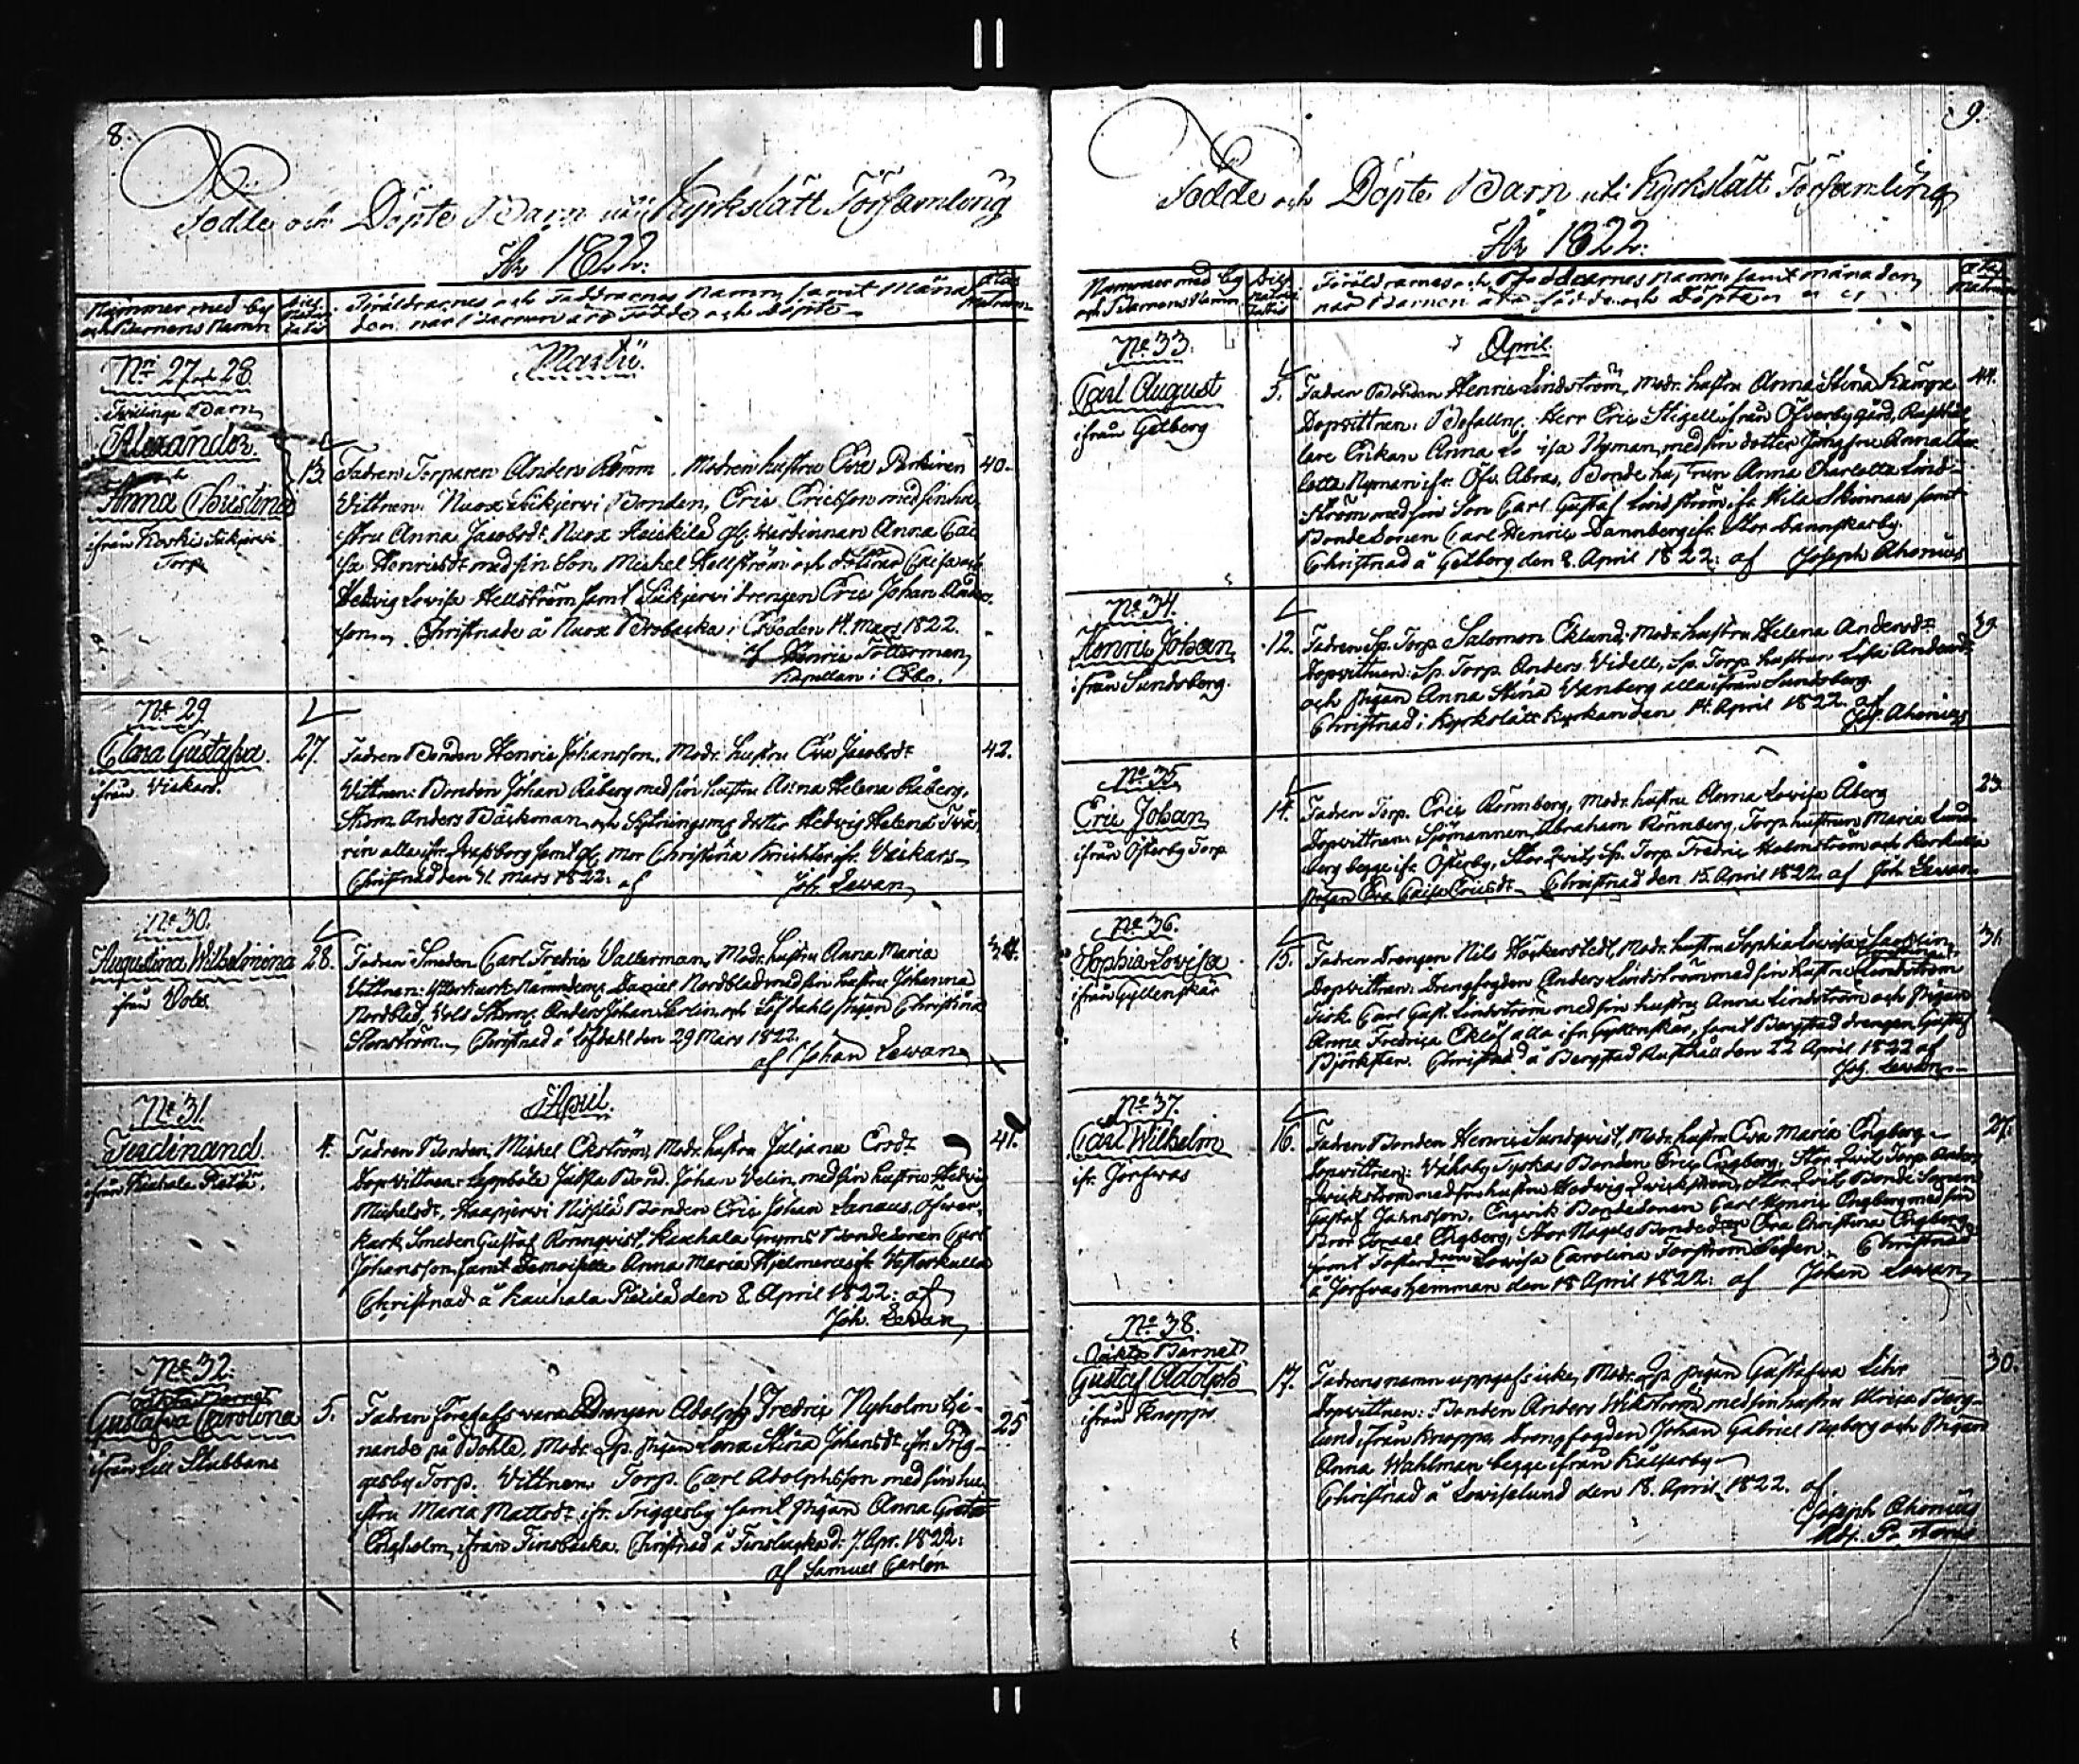 8.
Födde och Döpte Barn uti Kyrkslätt Församling
År 1822.
Nummer med by
och Barnens Namn
Dies
nativi-
tatis
Föräldrarnes och Faddrarnes Namn samt Måna
den när Barnen äro Födde och Döpte
ætas
matrum
Martii.
Nri 27 och 28.
Tvillinge Barn
Alexander.
och
Anna Christina
ifrån Koskis Siikjervi
Torp
13.
Fadren Torparen Anders Römm. Modren hustru Eva Perkirén
40.
Vittnen: Nuox Siikjervi Bonden, Eric Ericsson med sin hu
stru Anna Jacobsdt. Nuox Heickilä gl. Värdinnan Anna Cai
sa Henricsdt med sin Son, Michel Hellström och döttrar Caisa och
Hedvig Lovisa Hellström samt Siikjervi drengen Eric Johan Anders-
son. Christnade å Nuox Brobacka i Esbo den 14. Mars 1822.
af Henric Tötterman
Kapellan i Esbo.
No 29
Clara Gustafva.
ifrån Viskars.
27.
Fadren Bonden Henric Johansson, Modr. hustru Eva Jacobsdt
42.
Vittnen: Bonden Johan Råberg med sin hustru Anna Helena Råberg,
Skom. Anders Bäckman och Sytningsmans dotter Hedvig Helena
rin alla ifr. Evasborg samt gl. mor Christina ifr. Vaickars
Christnad den 31. Mars 1822. af
Joh. Levan
No 30.
Augustina Wilhelmina
från Vols.
28.
Fadren Smeden Carl Fredric Vallerman, Modr. hustru Anna Maria
34.
Vittnen: Ysterkurk Nämndem. Daniel Nordblad med sin hustru Johanna
Nordblad, Vols Skom. Anders Johan Serlin och Löfdahls pigan Christina
Stenström. Christnad å Löfdahl den 29 Mars 1822.
af Johan Levan
No 31.
April.
Ferdinand
ifrån Kauhala Pietilä.
4.
Fadren Bonden, Michel Ekström, Modr. hustru Juliana Ersdt
41.
Dopvittnen: Lappböle Jussa Bond. Johan Velin, med sin hustru Hedvig
Michelsdt. Haapjervi Nissilä Bonden Eric Johan Lanaus, Öfver-
kurk Smeden Gustaf Rönnqvist, Kauhala Gryms Bondesonen Carl
Johansson samt Demoiselle Anna Maria Hjelmerus ifr. Vesterkulla
Christnad å Kauhala Pietilä den 8. April 1822. af
Joh. Levan
No 32.
Oäkta Barnet
Gustafva Carolina
ifrån Lill Stubbans
5.
Fadren föregafs vara Drengen Adolph Fredric Nyholm tje-
25
nande på Bohle, Modr. Lp. pigan Lena Stina Johansdt ifr. Frig-
gesby Torp. Vittnen Torp. Carl Adolphsson med sin hu-
stru Maria Mattsdt. ifr. Friggesby samt pigan Anna Greta
Engholm, ifrån Finsbacka. Christnad å Finsbacka d. 7. Apr. 1822.
af Samuel Carlén
9.
Födde och Döpte Barn uti Kyrkslätt Församling
År 1822.
Nummer med by
och Barnens Namn
Dies
nativi-
tatis
Föräldrarnes och Faddrarnes Namn samt månaden
när Barnen äro födde och Döpte
ætas
matrum
April.
No 33.
Carl August
ifrån Gelberg
5.
Fadren Bonden Henric Lindström, Modr. hustru Anna Stina Kämpe
44.
Dopvittnen: Befallng. Herr Eric Stigell ifrån Öfverby gård, Rusthål
lare Enkan Anna Lovisa Nyman med sin dotter Jungfru Anna Char
lotta Nyman ifr. Öfv. Abras, Bonde hustrun Anna Charlotta Lind-
ström med sin Son Carl Gustaf Lindström, ifr. Hila Skinnars samt
Bondesonen Carl Henric Dannberg ifr. Stor Kannskarby.
Christnad å Gelberg den 8. April 1822. af Joseph Ahonius
No 34.
Henric Johan
ifrån Sundsberg.
12.
Fadren Sp. Torp. Salomon Eklund, Modr. hustru Helena Andersdt
39.
Dopvittnen: Sp. Torp. Anders Videll, Sp. Torp. hustrun Lisa Andersdt
och pigan Anna Stina Vanberg alla ifrån Sundsberg.
Christnad i Kyrkslätt Kyrka den 14. April 1822. af
Jos. Ahonius
No 35
Eric Johan
ifrån Österby Torp
14.
Fadren Torp. Eric Rönnberg, Modr. hustru Anna Lovisa Åberg
23.
Dopvittnen: Sjömannen Abraham Rönnberg, Torp. hustrun Maria Lind-
berg begge ifr. Österby, Stor Qvits Sp. Torp. Fredric Holmström och
pigan Eva Caisa Ericsdt. Christnad den 15. April 1822. af Joh. Levan
No 36.
Sophia Lovisa
ifrån Gyllenskär
15.
Fadren Drengen Nils Häckerstedt, Modr. hustru Sophia Lovisa
31.
Dopvittnen: Drengfogden Anders Lindström med sin hustru Lindström
Fisk. Carl Gust. Lindström med sin hustru Anna Lindström och pigan
Anna Fredrica Eklöf alla ifr. Gyllenskär, samt Bergstad drengen Gustaf
Björksten. Christnad å Bergstad Rusthåll den 22 April 1822 af
Joh. Levan
No 37.
Carl Wilhelm
ifr. Jorfvas
16.
Fadren Bonden Henric Sundqvist, Modr. hustru Eva Maria Engberg
27.
Dopvittnen: Tyskas Bonden Eric Engberg, Stor Qvits Torp. Anders
Qvickström med sin hustru Hedvig Qvickström, Stor Qvits Bonde Sonen
Gustaf Johansson, Engvik Bondesonen Carl Henric Engberg med sin
Bror Israel Engberg, Stor Näpels Bondedotren Eva Christina Engberg
samt Fosterdotren Lovisa Carolina Torström Christnad
å Jorfvas hemman den 18 April 1822. af Johan Levan
No 38.
Oäkta Barnet
Gustaf Adolph
ifrån Knopps
17.
Fadrens namn uppgafs icke, Modr. Lp. pigan Gustafva Lihr
30.
Dopvittnen: Bonden Anders Wikström med sin hustru Ulrica Berg-
lund ifrån Knopps, Drengfogden Johan Gabriel Nyberg och Pigan
Anna Wahlman begge ifrån Käljarby
Christnad å Loviselund den 18. April 1822. af
Joseph Ahonius
Adj.